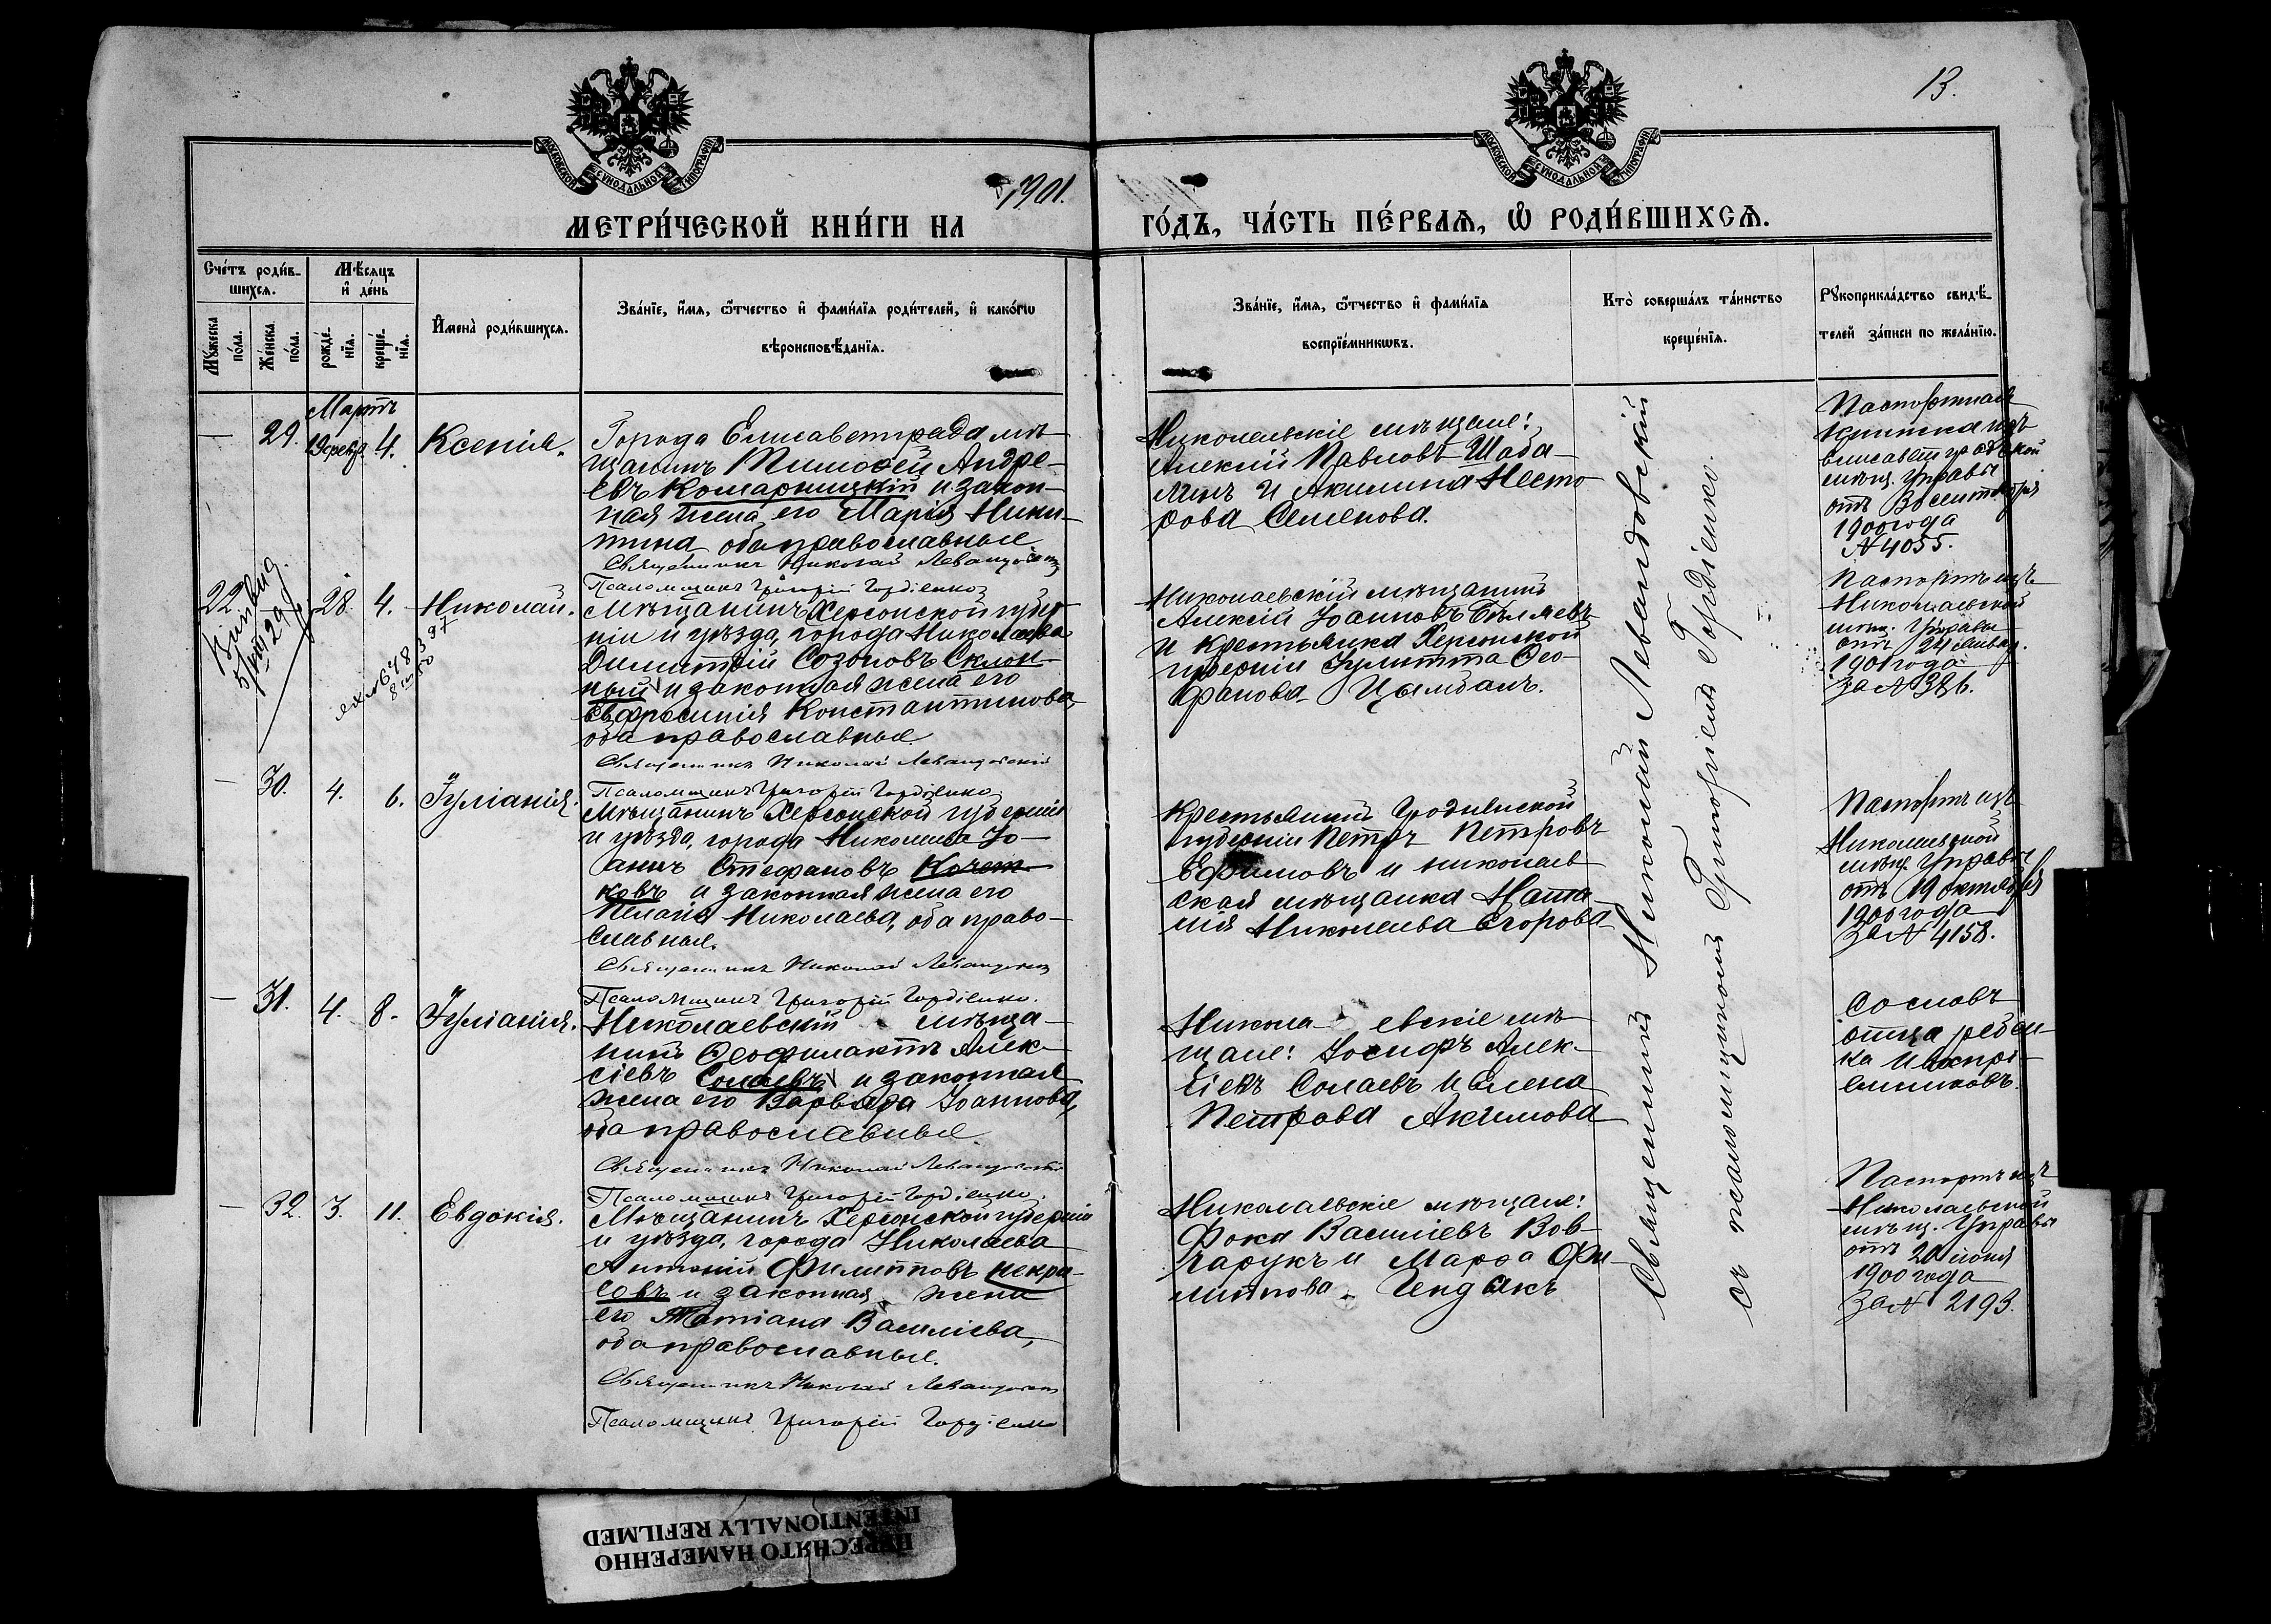 13.
МОСКОВСКОЙ СѴНОДАЛЬНОЙ ТИПОГРАФІИ
МОСКОВСКОЙ СѴНОДАЛЬНОЙ ТИПОГРАФІИ
МЕТРИ́ЧЕСКОЙ КНИ́ГИ НА 1901.
ГО́ДЪ, ЧА́СТЬ ПЕ́РВАѦ, Ѿ РОДИ́ВШИХСѦ.
Сче́тъ роди́в-
шихсѧ.
Мꙋ́жеска
по́ла.
Же́нска
по́ла.
Мѣ́сѧцъ
и҆ де́нь
рожде́-
нїѧ.
креще́-
нїѧ.
И҆мена̀ роди́вшихсѧ.
Зва́нїе, и҆́мѧ, ѻ҆́тчество и҆ фами́лїѧ роди́телей, и҆ како́гѡ
вѣроисповѣ́данїѧ.
Зва́нїе, и҆́мѧ, ѻ҆́тчество и҆ фами́лїѧ
воспрїе́мникѡвъ.
Кто̀ соверша́лъ та́инство
креще́нїѧ.
Рꙋкоприкла́дство свидѣ́-
телей за́писи по жела́нїю.
Мартъ
29.
19 февр.
4.
Ксенія.
Города Елисаветграда мѣ-
щанинъ Тимоѳей Андре-
евъ Комарницкій и закон-
ная жена его Марія Ники-
тина, оба православные
Священникъ Николай Левандовскій
Псаломщикъ Григорій Гордіенко
Николаевскіе мѣщане:
Алексій Павловъ Шаба-
линъ и Акилина Несто-
рова Семенова.
Паспортная
книжка изъ
Елисаветградской
мѣщ. Управы
отъ
1900 года
№ 4055.
22.
28.
4.
Николай.
Мѣщанинъ Херсонской губер-
ніи и уѣзда, города Николаева
Димитрій Созоновъ Склон-
ный и законная жена его
Евфросинія Константинова,
оба православные.
Священникъ Николай Левандовскій
Псаломщикъ Григорій Гордіенко
Николаевскій мѣщанинъ
Алексій Іоанновъ Бѣляевъ
и крестьянка Херсонской
губерніи Іулитта Ѳео-
фанова Цымбалъ.
Паспортъ изъ
Николаевской
мѣщ. Управы
отъ 24 Январ.
1901 года
за № 386.
30.
4.
6.
Іуліанія.
Мѣщанинъ Херсонской губерніи
и уѣзда, города Николаева Іо-
аннъ Стефановъ Кочет-
ковъ и законная жена его
Пелагія Николаева, оба право-
славные.
Священникъ Николай Левандовскій
Псаломщикъ Григорій Гордіенко.
Крестьянинъ Гродненской
губерніи Петръ Петровъ
Ефимовъ и николаев-
ская мѣщанка Ната-
лія Николаева Егорова
Паспортъ изъ
Николаевской
мѣщ. Управы
отъ 19 октября
1900 года
за № 4158.
31.
4.
8.
Іуліанія.
Николаевскій мѣща-
нинъ Ѳеофилактъ Алек-
сіевъ Солаевъ и законная
жена его Варвара Іоаннова,
оба православные.
Священникъ Николай Левандовскій
Псаломщикъ Григорій Гордіенко.
Николаевскіе мѣ-
щане: Іосифъ Алек-
сіевъ Солаевъ и Елена
Петрова Акимова
Со словъ
отца ребен-
ка и воспрі-
емниковъ.
32.
3.
11.
Евдокія.
Мѣщанинъ Херсонской губерніи
и уѣзда, города Николаева
Антоній Филипповъ Некра-
совъ и законная жена
его Татіана Василіева,
оба православные.
Священникъ Николай Левандовскій
Псаломщикъ Григорій Гордіенко
Николаевскіе мѣщане:
Фока Василіевъ Вов-
чарукъ и Марѳа Фи-
липпова Гендакъ
Паспортъ изъ
Николаевской
мѣщ. Управы
отъ 20 іюня
1900 года
за № 2193.
Священникъ Николай Левандовскій
съ псаломщикомъ Григоріемъ Гордіенко.
ПЕРЕСНЯТО НАМЕРЕННО
INTENTIONALLY REFILMED